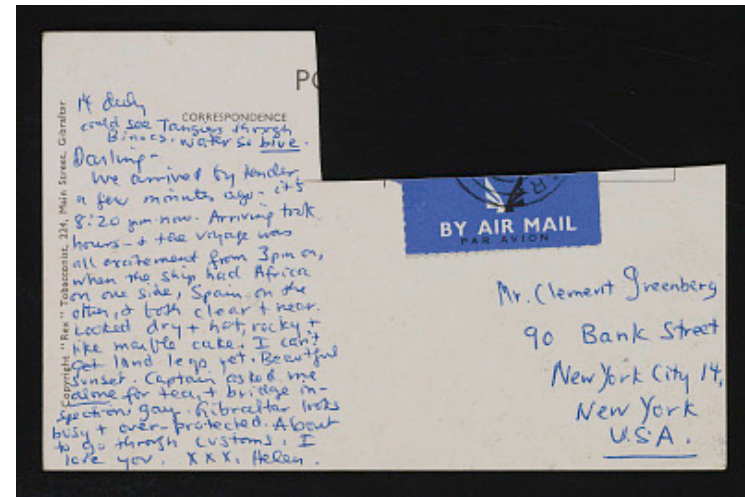 PO
14 July
CORRESPONDENCE
could see Tangiers through
Binocs. water so blue.
Darling -
We arrived by tender
a few minutes ago - it's
8:20 pm now. Arriving took
hours - + the voyage was
all excitement from 3pm on,
when the ship had Africa
on one side, Spain on the
other, + both clear + near.
Looked dry + hot, rocky +
like marble cake. I can't
get land legs yet. Beautiful
sunset. Captain asked me
alone for tea, + bridge in-
spection gay. Gibraltar looks
busy + over-protected. About
to go through customs. I
love you. XXX. Helen.
Copyright "Rex" Tobacconist, 224, Main Street, Gibraltar
BY AIR MAIL
PAR AVION
Mr. Clement Greenberg
90 Bank Street
New York City 14,
New York
U.S.A.